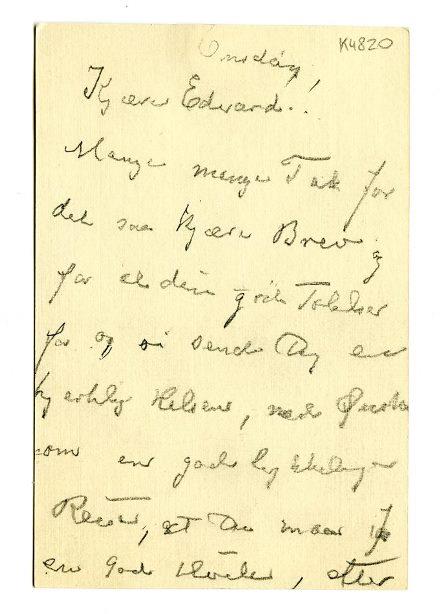 K4820
Onsdag,
Kjære Edvard!
Mange mange Tak for
det saa kjære Brev og
for al din gode
for og vi sende Dig en
hjertelig Hilsen, med Ønske
om en god lykkelig
Reise, at Du maa
en god, efter